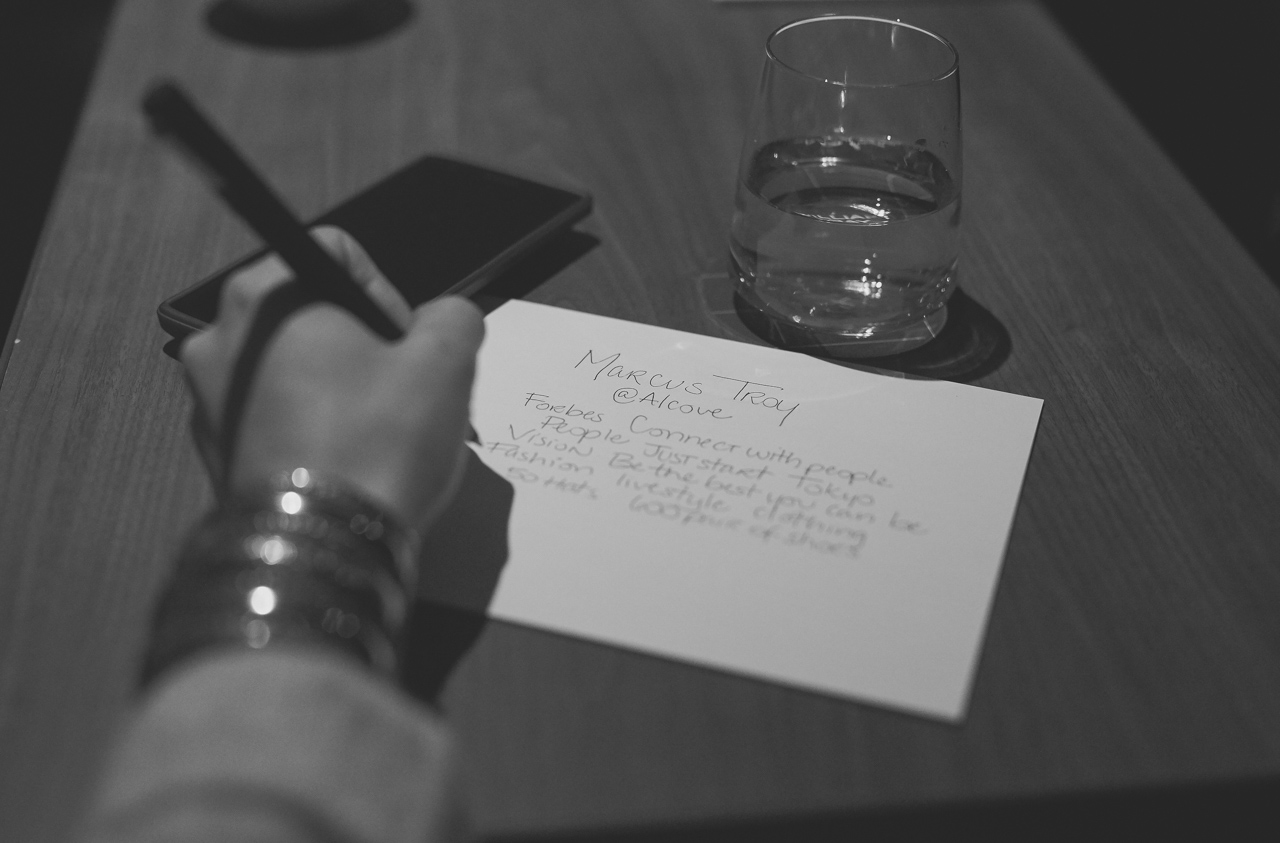 Marcus Troy
@Alcove
Forebes Connect with people
People Just start Tokyo
Vision Be the best you can be
Fashion livestyle clothing
50 Hats 600 pair of shoes